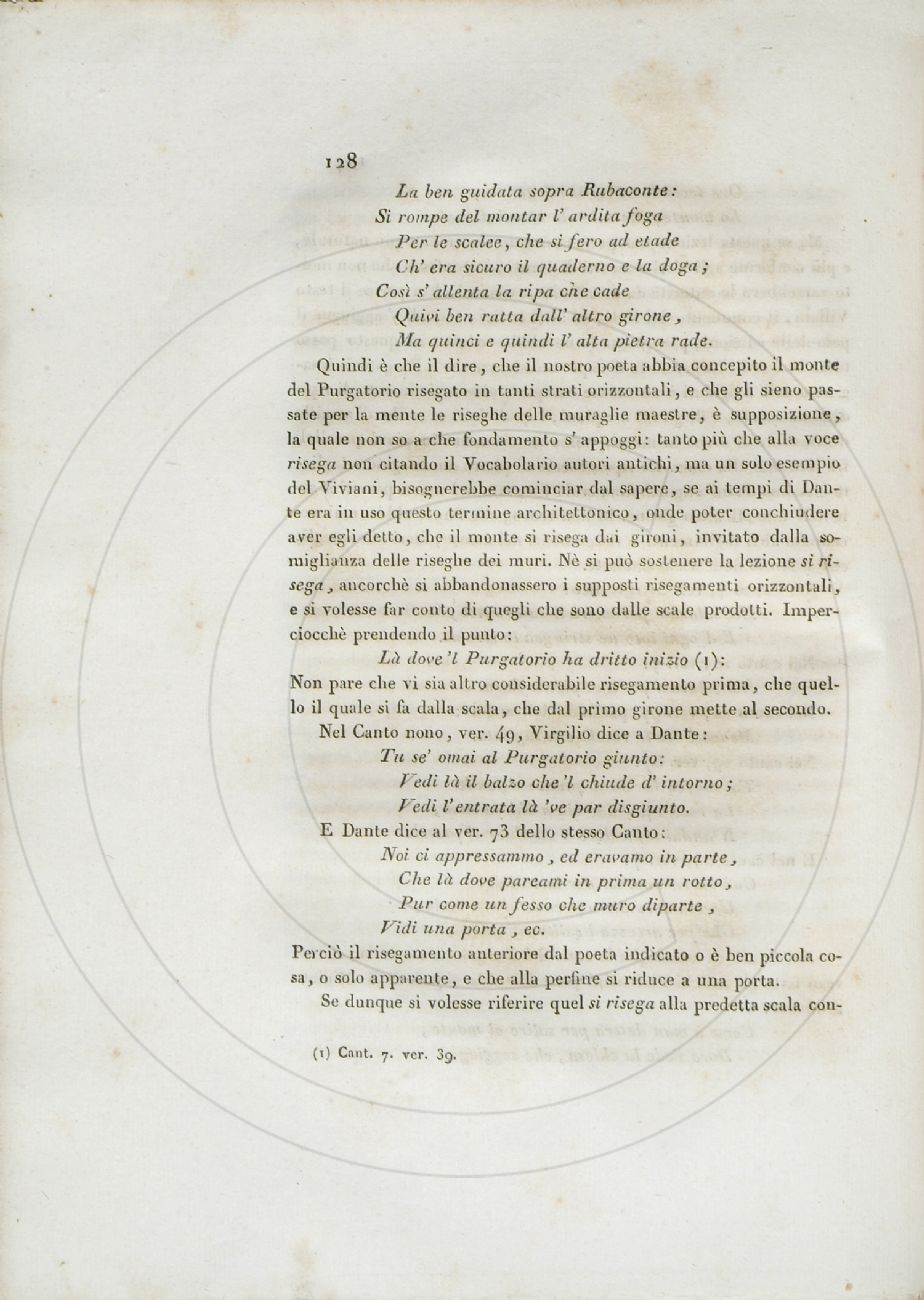 128
La ben guidata sopra Rubaconte:
Si rompe del montar l' ardita foga
Per le scalee, che si fero ad etade
Ch' era sicuro il quaderno e la doga;
Così s' allenta la ripa che cade
Quivi ben ratta dall' altro girone,
Ma quinci e quindi l' alta pietra rade.
Quindi è che il dire, che il nostro poeta abbia concepito il monte
del Purgatorio risegato in tanti strati orizzontali, e che gli sieno pas-
sate per la mente le riseghe delle muraglie maestre, è supposizione,
la quale non so a che fondamento s' appoggi: tanto più che alla voce
risega non citando il Vocabolario autori antichi, ma un solo esempio
del Viviani, bisognerebbe cominciar dal sapere, se ai tempi di Dan-
te era in uso questo termine architettonico, onde poter conchiudere
aver egli detto, che il monte si risega dai gironi, invitato dalla so-
miglianza delle riseghe dei muri. Nè si può sostenere la lezione si ri-
sega, ancorchè si abbandonassero i supposti risegamenti orizzontali,
e si volesse far conto di quegli che sono dalle scale prodotti. Imper-
ciocchè prendendo il punto:
Là dove 'l Purgatorio ha dritto inizio (1):
Non pare che vi sia altro considerabile risegamento prima, che quel-
lo il quale si fa dalla scala, che dal primo girone mette al secondo.
Nel Canto nono, ver. 49, Virgilio dice a Dante:
Tu se' omai al Purgatorio giunto:
Vedi là il balzo che 'l chiude d' intorno;
Vedi l' entrata là 've par disgiunto.
E Dante dice al ver. 73 dello stesso Canto:
Noi ci appressammo, ed eravamo in parte,
Che là dove pareami in prima un rotto,
Pur come un fesso che muro diparte,
Vidi una porta, ec.
Perciò il risegamento anteriore dal poeta indicato o è ben piccola co-
sa, o solo apparente, e che alla perfine si riduce a una porta.
Se dunque si volesse riferire quel si risega alla predetta scala con-
(1) Cant. 7. ver. 39.